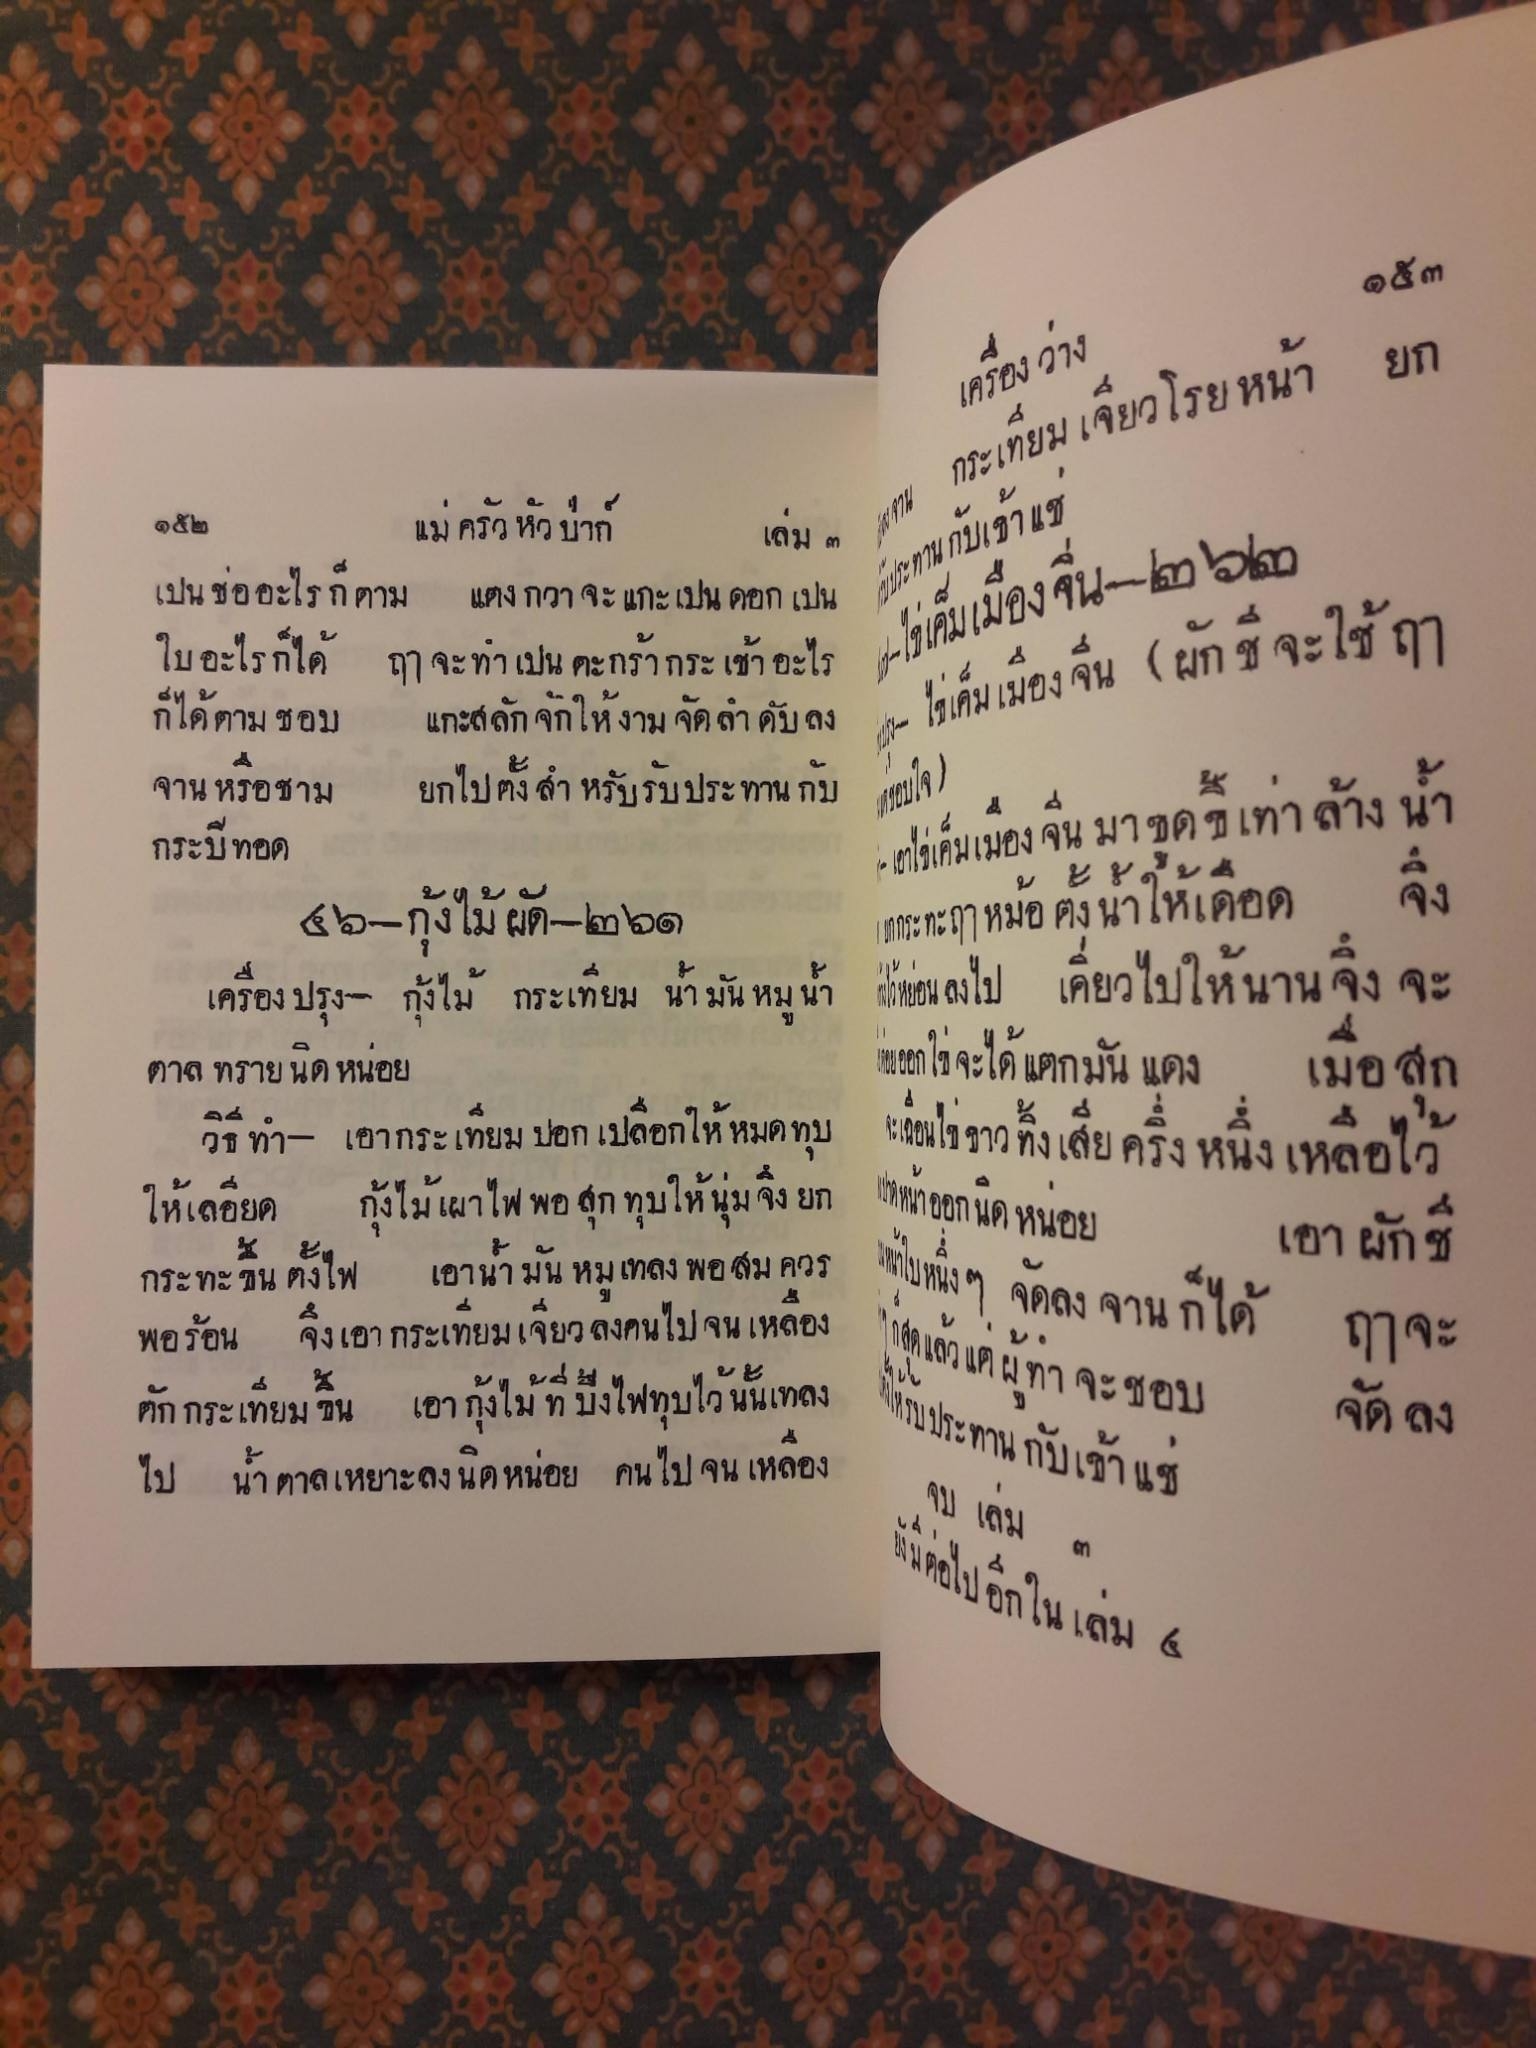 ๑๕๒ แม่ครัวหัวป่าก์ เล่ม ๓
เปนช่ออะไรก็ตาม แตงกวาจะแกะเปนดอกเปน
ใบอะไรก็ได้ ฤๅจะทำเปนตะกร้ากระเช้าอะไร
ก็ได้ตามชอบ แกะสลักจักให้งามจัดลำดับลง
จานหรือชาม ยกไปตั้งสำหรับรับประทานกับ
กระบีทอด
๔๖—กุ้งไม้ผัด—๒๖๑
เครื่องปรุง— กุ้งไม้ กระเทียม น้ำมันหมูน้ำ
ตาลทรายนิดหน่อย
วิธีทำ— เอากระเทียมปอกเปลือกให้หมดทุบ
ให้เลอียด กุ้งไม้เผาไฟพอสุกทุบให้นุ่มจึงยก
กระทะขึ้นตั้งไฟ เอาน้ำมันหมูเทลงพอสมควร
พอร้อน จึงเอากระเทียมเจียวลงคนไปจนเหลือง
ตักกระเทียมขึ้น เอากุ้งไม้ที่ปิ้งไฟทุบไว้นั้นเทลง
ไป น้ำตาลเหยาะลงนิดหน่อย คนไปจนเหลือง
๑๕๓
เครื่องว่าง
กระเทียมเจียวโรยหน้า ยก
จาน
ประทานกับเข้าแช่
ไข่เค็มเมืองจีน—๒๖๒
ปรุง— ไข่เค็มเมืองจีน (ผักชีจะใช้ฤๅ
ชอบใจ)
เอาไข่เค็มเมืองจีนมาขูดขี้เท่าล้างน้ำ
ยกกระทะฤๅหม้อตั้งน้ำให้เดือด จึง
ไว้หย่อนลงไป เคี่ยวไปให้นานจึงจะ
ออกไข่จะได้แตกมันแดง เมื่อสุก
จะเฉือนไข่ขาวทิ้งเสียครึ่งหนึ่งเหลือไว้
ปาดหน้าออกนิดหน่อย เอาผักชี
หน้าใบหนึ่งๆ จัดลงจานก็ได้ ฤๅจะ
ก็สุดแล้วแต่ผู้ทำจะชอบ จัดลง
ให้รับประทานกับเข้าแช่
จบ เล่ม ๓
ยังมีต่อไปอีกในเล่ม ๔